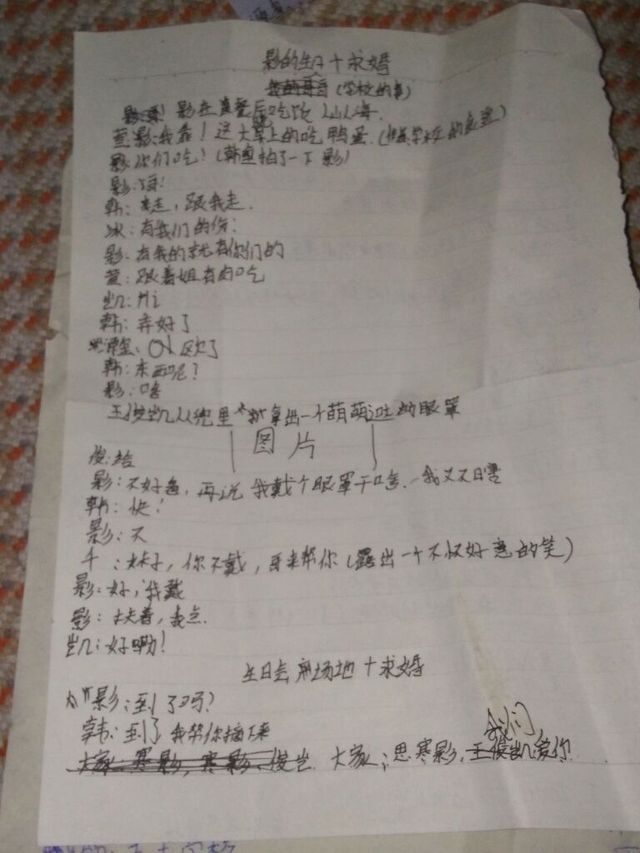 影的生日+求婚
(学校的事)
影在食堂后吃饭 人山人海
萱:影:我靠!这大草上的吃鸭蛋.
影:你们吃?(韩 拍了一下影)
影:嗨!
韩:走,跟我走.
冰:有我们的份:
影:有我的就有你们的
萱:跟着姐有肉吃
凯:Hi
韩:弄好了
OK 区欠了
韩:东西呢?
影:啥
王俊凯从兜里 拿出一个萌萌 的眼罩
图片
俊:给
影:不好看,再说我戴个眼罩干啥、我又不瞎
韩:快!
影:不
千:妹子,你不戴,哥来帮你(露出一个不怀好意的笑)
影:好,我戴
影:扶着,我点.
凯:好嘞!
生日会 场地+求婚
影:到了吗?
韩:到了 我帮你摘下来
我们
大家:寒影,寒影、俊凯 大家:思寒影,王俊凯爱你